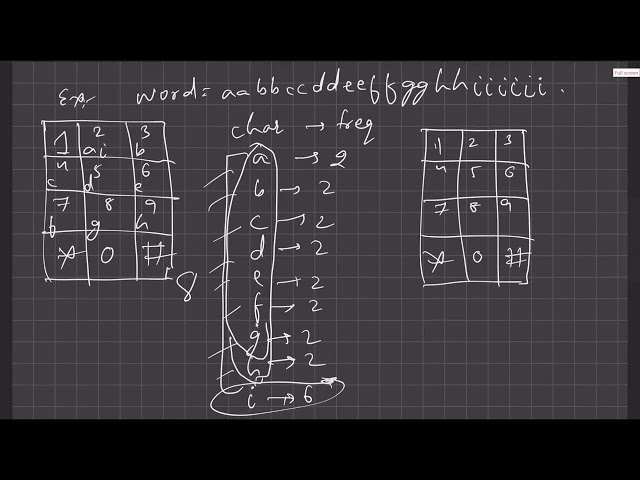 Full screen
Ex:- word = aabbccddeeffgghhiiiiii.
char → freq
1 2 3
ai b
4 5 6
c d e
7 8 9
f g h
* 0 #
8
a → 2
b → 2
c → 2
d → 2
e → 2
f → 2
g → 2
h → 2
i → 6
1 2 3
4 5 6
7 8 9
* 0 #